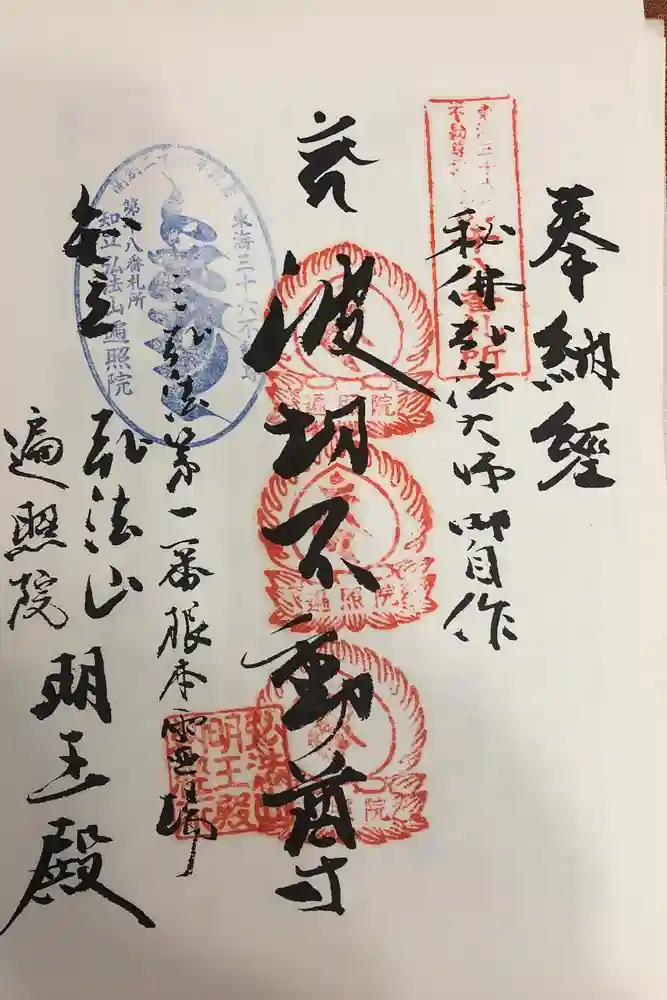 奉納經
秘佛弘法大師御自作
波切不動尊
三弘法第一番根本霊場
知立
弘法山
遍照院
明王殿
東海三十六不動尊
番札所
遍照院
遍照院
遍照院
弘法山
明王殿
東海三十六不動尊
第八番札所
知立弘法山遍照院